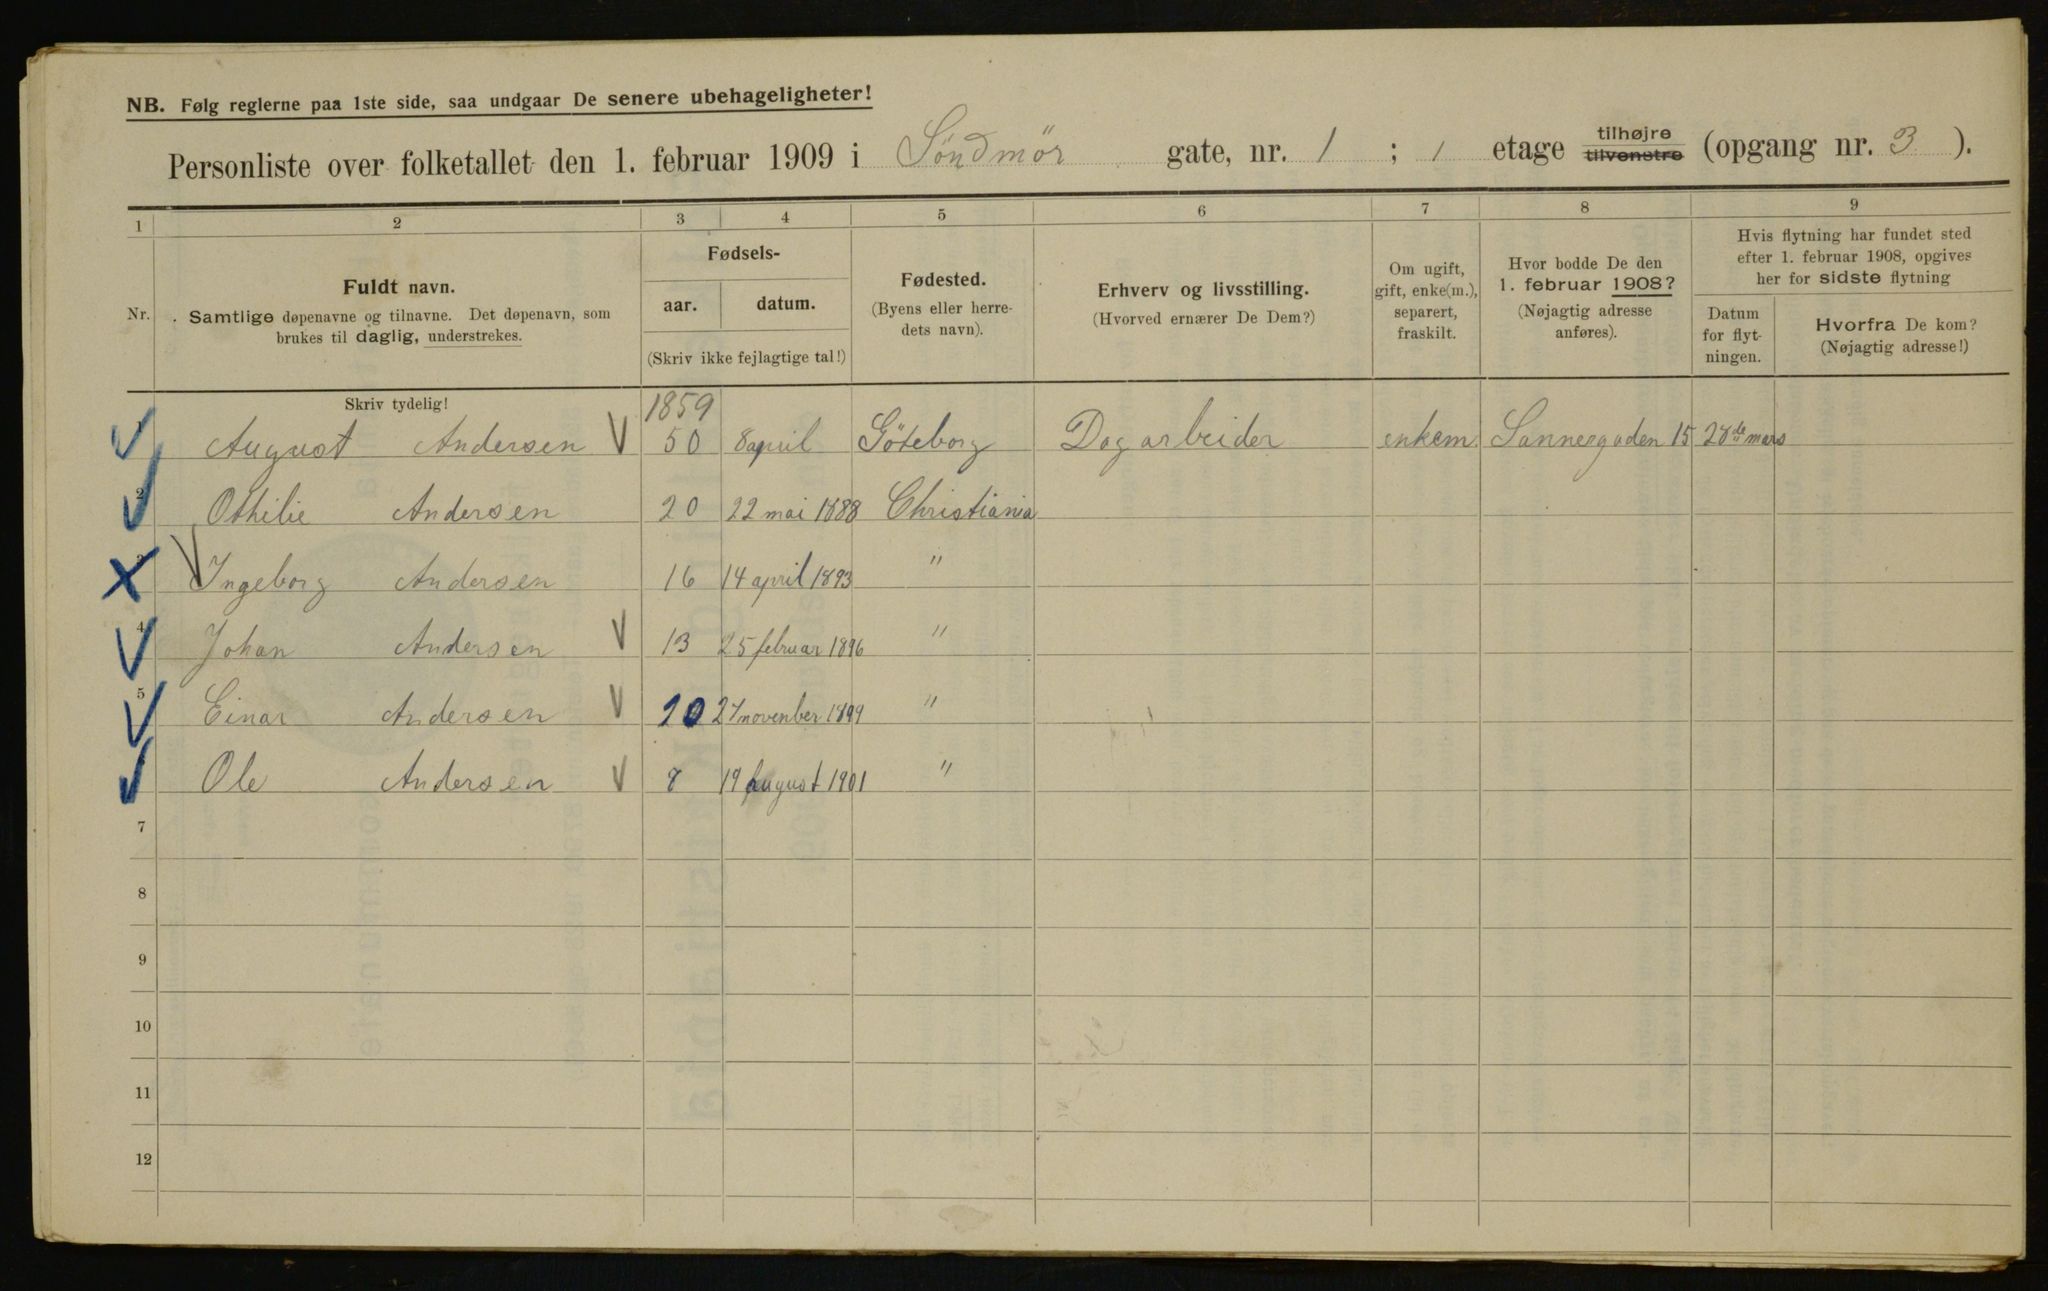 NB. Følg reglerne paa 1ste side, saa undgaar De senere ubehageligheter!
Personliste over folketallet den 1. februar 1909 i Söndmör gate, nr. 1 ; 1 etage tilhøjre tilvenstre (opgang nr. 3 ).
1 2 3 4 5 6 7 8 9
Nr. Fuldt navn. Samtlige døpenavne og tilnavne. Det døpenavn, som brukes til daglig, understrekes.
Fødsels- aar. datum. (Skriv ikke fejlagtige tal!)
Fødested. (Byens eller herredets navn).
Erhverv og livsstilling. (Hvorved ernærer De Dem?)
Om ugift, gift, enke(m.), separert, fraskilt.
Hvor bodde De den 1. februar 1908? (Nøjagtig adresse anføres).
Hvis flytning har fundet sted efter 1. februar 1908, opgives her for sidste flytning
Datum for flytningen. Hvorfra De kom? (Nøjagtig adresse!)
Skriv tydelig! 1859
1 August Andersen 50 8 april Göteborg Dagarbeider enkem. Sannergaden 15 28de mars
2 Othilie Andersen 20 22 mai 1888 Christiania
3 Ingeborg Andersen 16 14 april 1893 "
4 Johan Andersen 13 25 februar 1896 "
5 Einar Andersen 10 27 november 1899 "
Ole Andersen 8 19 august 1901 "
7
8
9
10
11
12